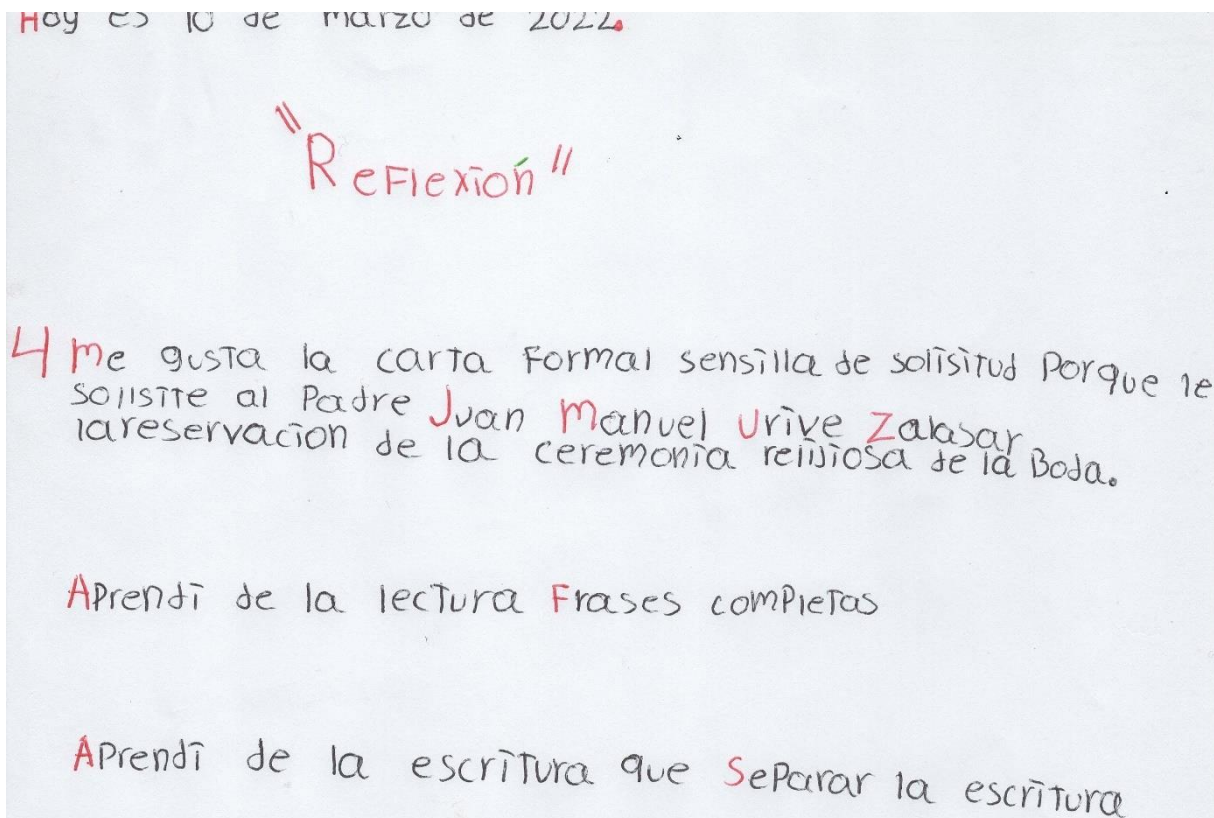 Hoy es 10 de marzo de 2022.
"Reflexión"
4 Me gusta la carta Formal sensilla de solisitud Porque le
solisite al Padre Juan Manuel Urive Zalasar
lareservacion de la ceremonia relijiosa de la Boda.
Aprendi de la lectura Frases completas
Aprendi de la escritura que Separar la escritura